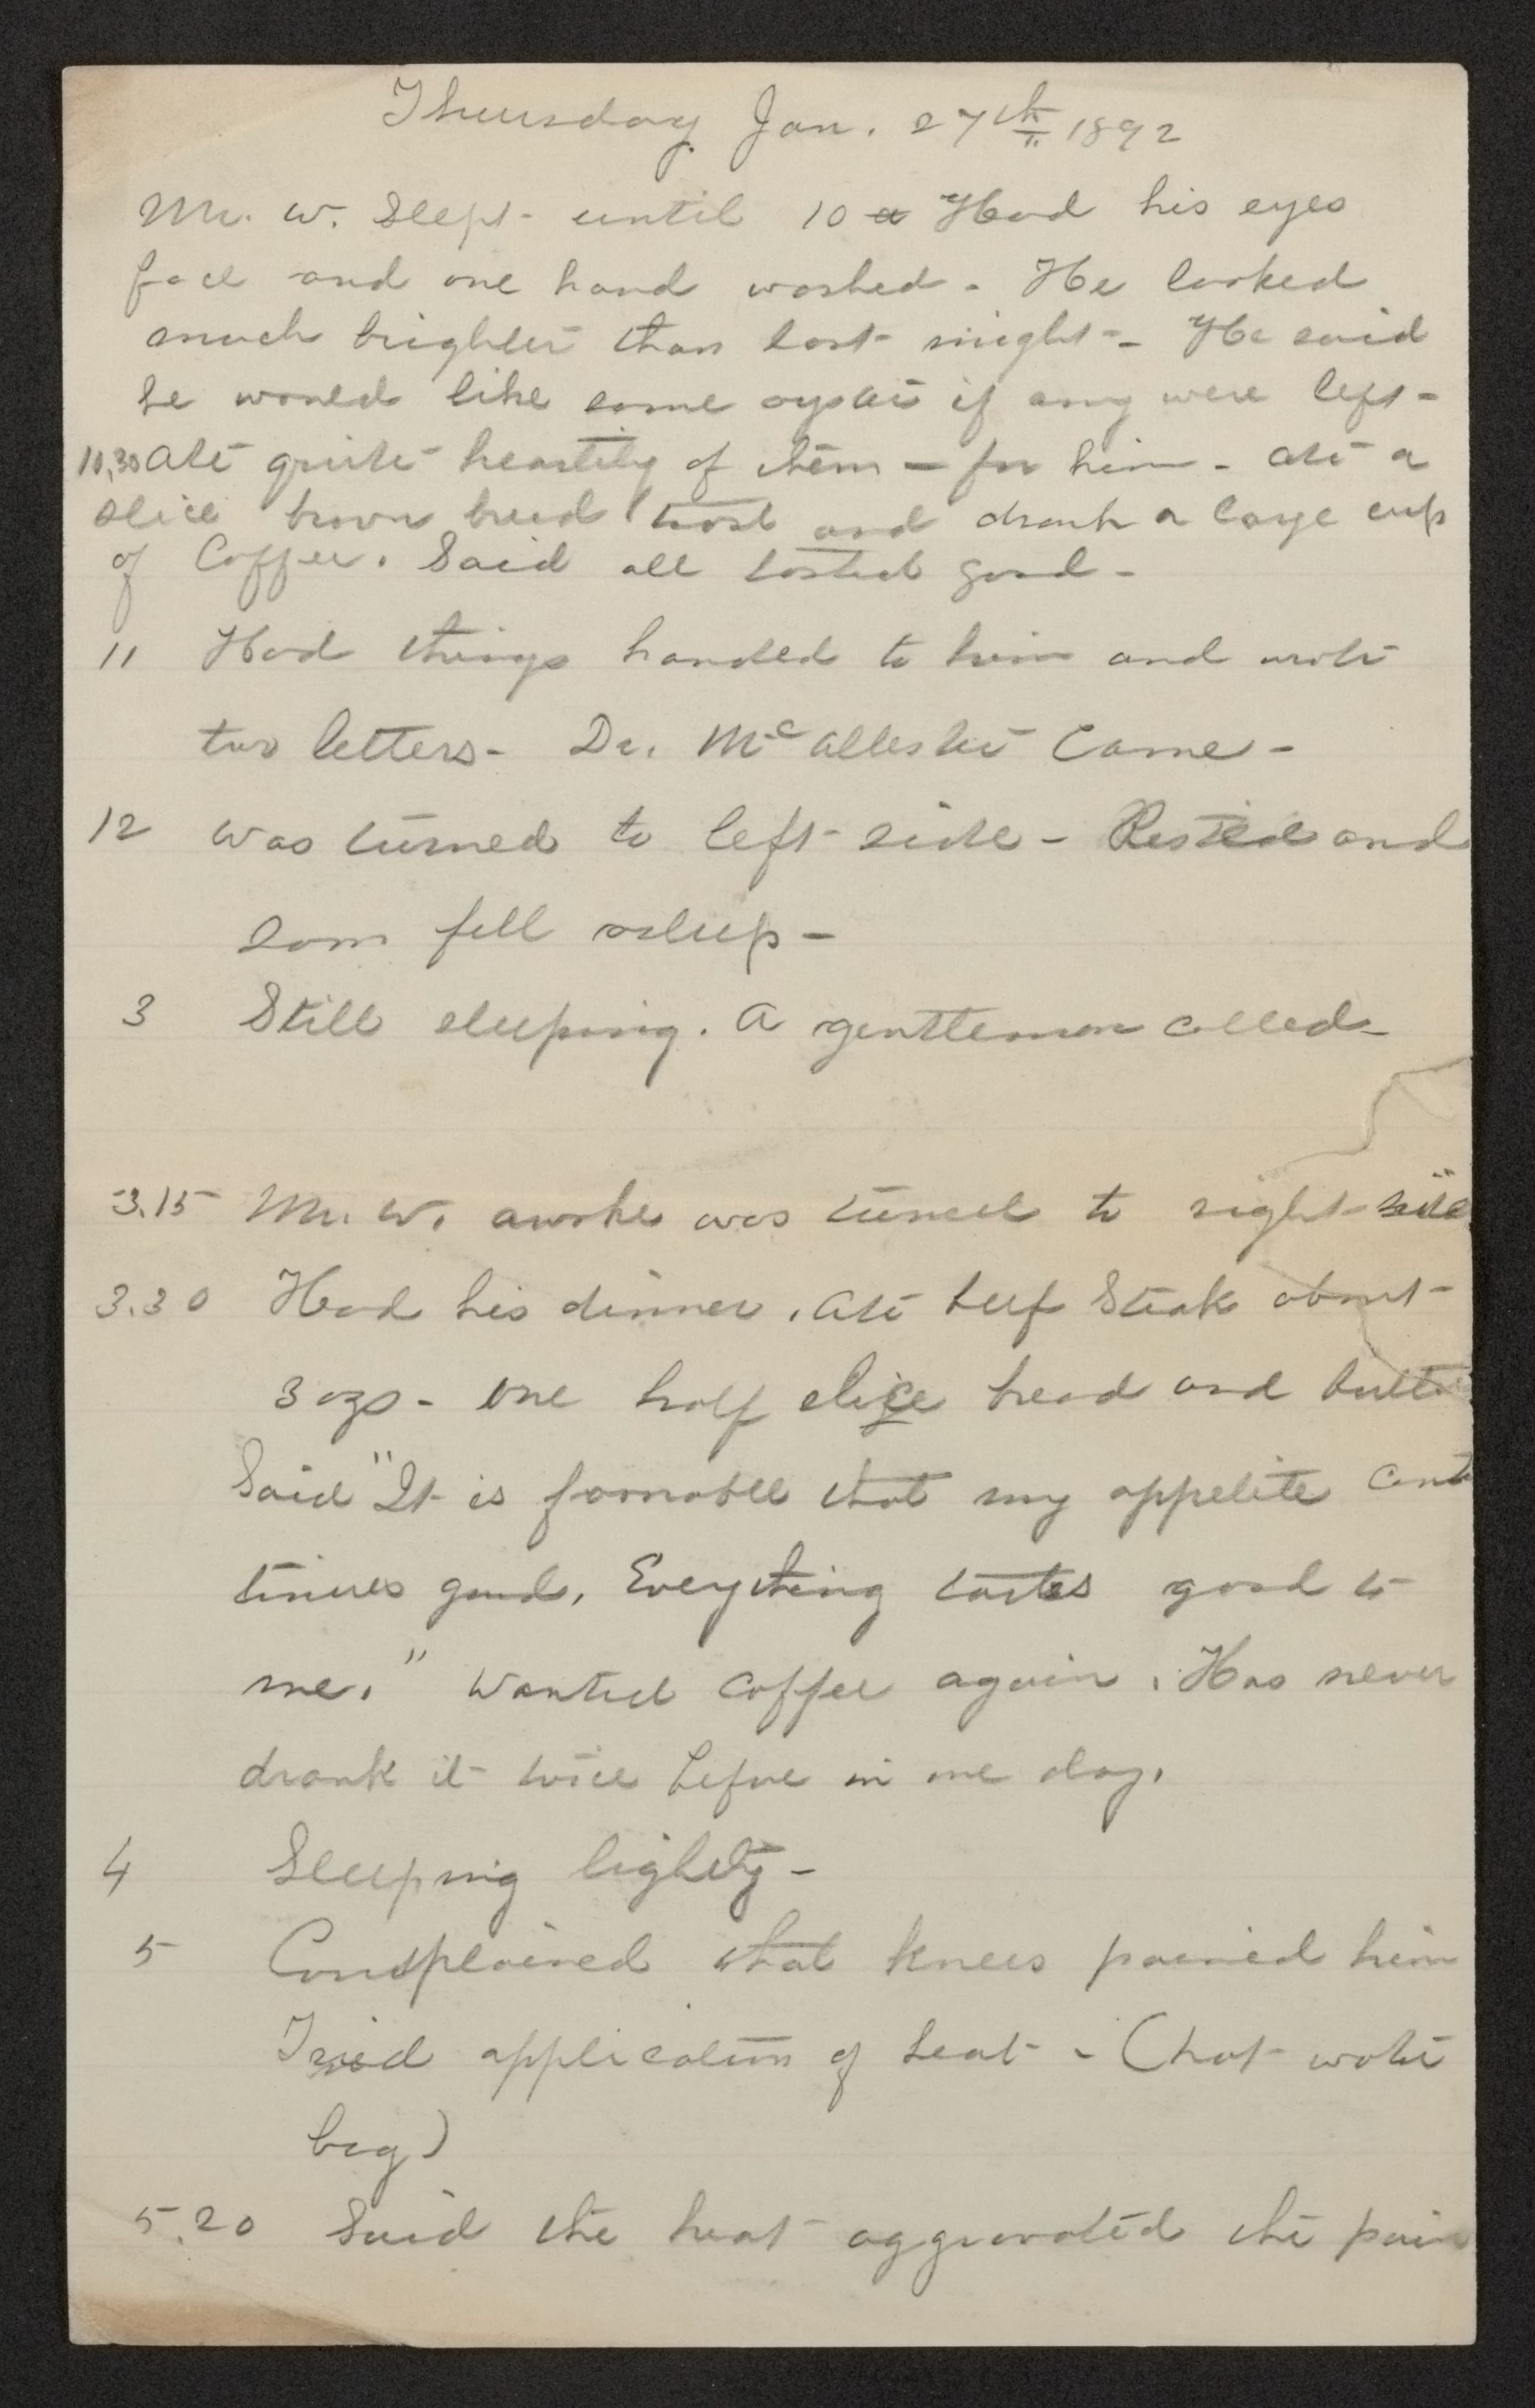 Thursday Jan. 27th 1892
Mr. W. Slept until 10 a Had his eyes
face and one hand washed - He looked
much brighter than last night - He said
he would like some oysters if any were left -
10,30 Ate quite heartily of them - for him - Ate a
slice brown bread toast and drank a large cup
of Coffee. Said all tasted good -
11 Had things handed to him and wrote
two letters - Dr. McAllester Came -
12 Was turned to left side - Rested and
soon fell asleep -
3 Still sleeping. A gentleman called -
3.15 Mr. W. awoke was turned to right side
3.30 Had his dinner. Ate beef Steak about
3 ozs - One half slice bread and butter
Said "It is favorable that my appetite con
tinues good. Everything tastes good to
me." Wanted Coffee again. Has never
drank it twice before in one day.
4 Sleeping lightly -
5 Complained that knees pained him
Tried application of heat - (hot water
bag)
5.20 Said the heat aggravated the pain